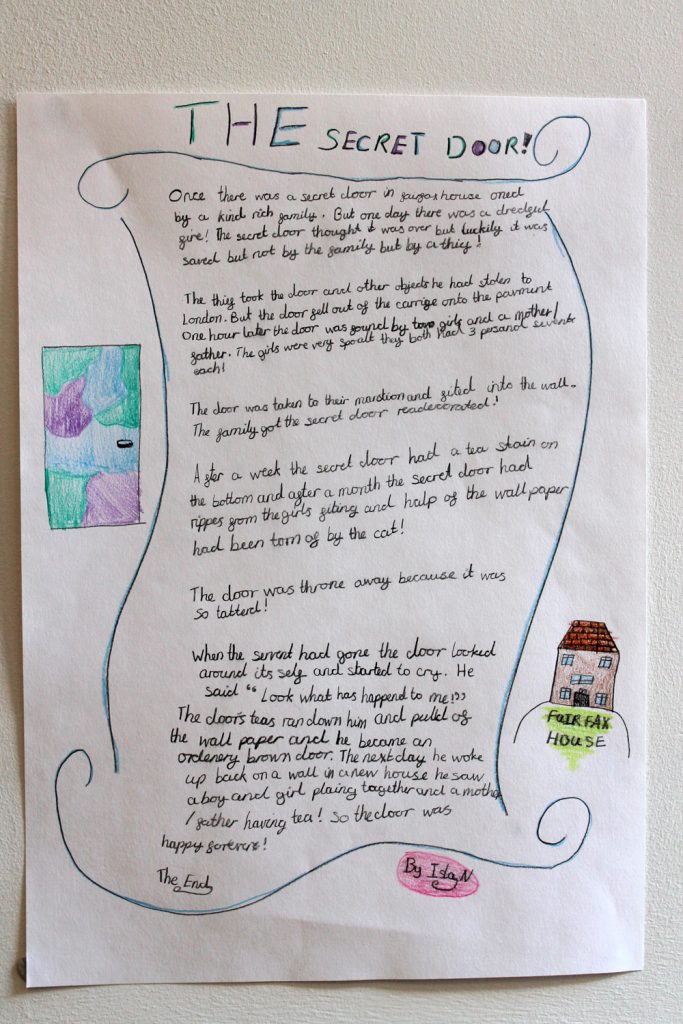 THE SECRET DOOR!
Once there was a secret door in fairfax house oned
by a kind rich family. But one day there was a dredful
fire! The secret door thought it was over but luckily it was
saved but not by the family but by a thif!
The thif took the door and other objects he had stolen to
London. But the door fell out of the carrige onto the pavment
One hour later the door was found by two girls and a mother/
father. The girls were very spoalt they both had 3 pesanol sevents
each!
The door was taken to their manstion and fited into the wall.
The family got the secret door readecorated!
After a week the secret door had a tea stain on
the bottom and after a month the secret door had
rippes from the girls fiting and half of the wall paper
had been torn of by the cat!
The door was throne away because it was
so tatterd!
When the servent had gone the door looked
around its self and started to cry. He
said "Look what has happend to me!"
The door's teas ran down him and pulld of
the wall paper and he became an
ordenery brown door. The next day he woke
up back on a wall in a new house he saw
a boy and girl plaing together and a mother
/father having tea! So the door was
happy forever!
The End
By Isla N
FAIRFAX
HOUSE